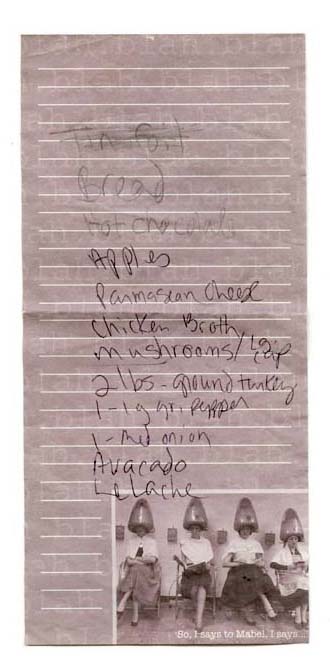 blah blah blah
blah blah blah
Tin Foil
Bread
Hot chocolate
Apples
Parmasean Cheese
Chicken Broth
mushrooms/ Lg. cap
2 lbs - ground turkey
1 - lg gr. pepper
1 - med onion
Avacado
LeLache
So, I says to Mabel, I says...